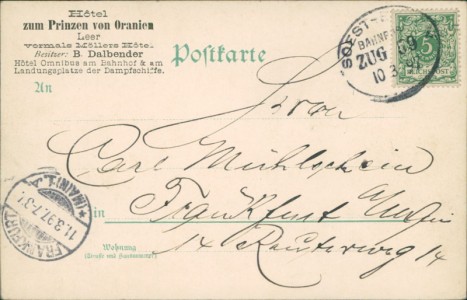 Hôtel
zum Prinzen von Oranien
Leer
vormals Möllers Hôtel
Besitzer: B. Dalbender
Hôtel Omnibus am Bahnhof & am
Landungsplatze der Dampfschiffe.
Postkarte
SOEST
BAHNPOST
ZUG
10 3
5
REICHSPOST
An
Herrn
Carl Mühlschein
in Frankfurt a/Main
Wohnung
(Straße und Hausnummer)
14 Reuterweg 14
FRANKFURT
(MAIN) 1.
11.3.97.7-8